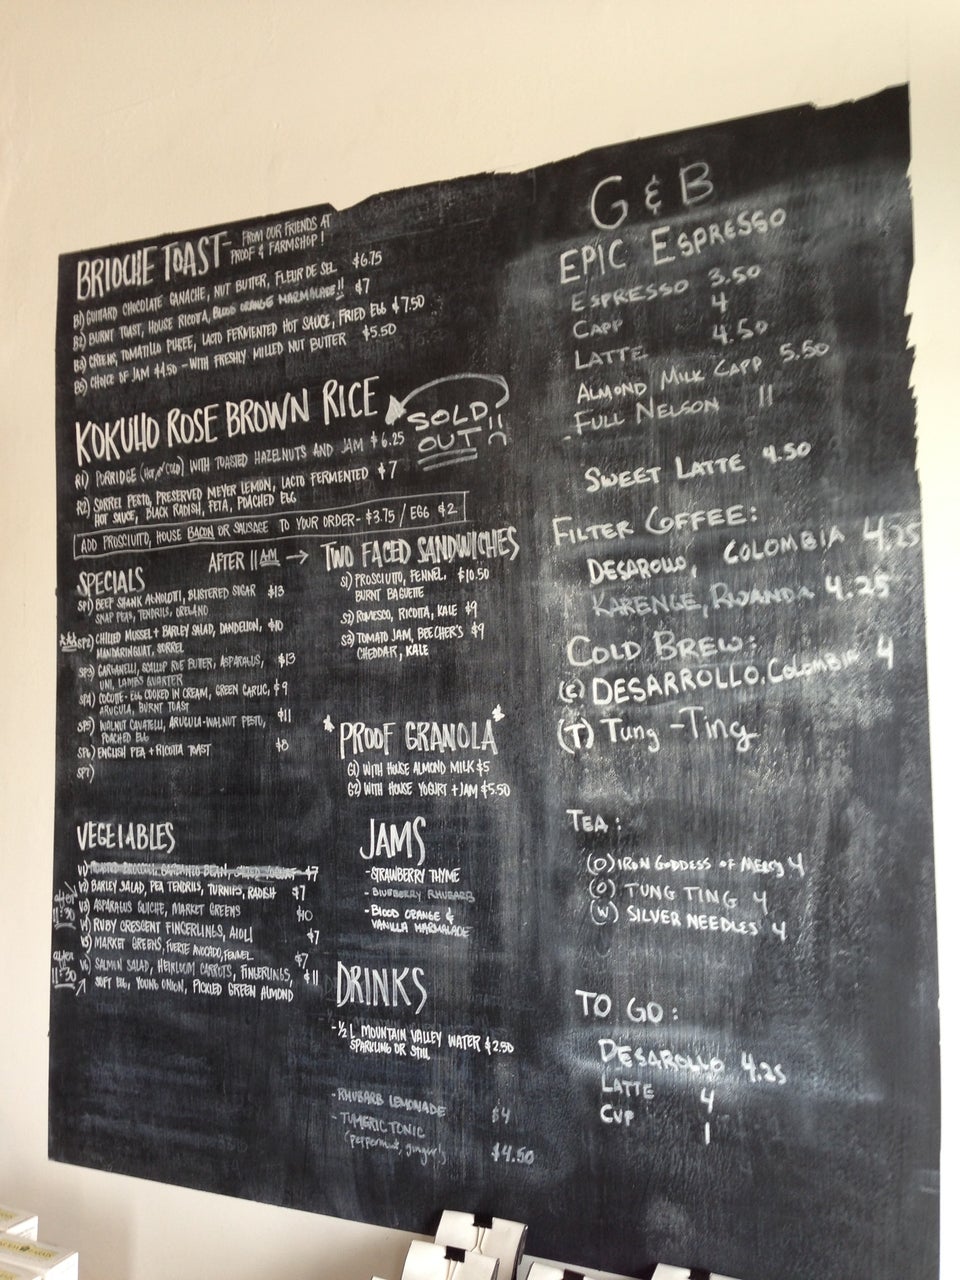 BRIOCHE TOAST- FROM OUR FRIENDS AT
PROOF & FARMSHOP!
B1) GUITARD CHOCOLATE GANACHE, NUT BUTTER, FLEUR DE SEL $6.75
B2) BURNT TOAST, HOUSE RICOTA, BLOOD ORANGE MARMALADE!! $7
B3) GREENS, TOMATILLO PUREE, LACTO FERMENTED HOT SAUCE, FRIED EGG $7.50
B5) CHOICE OF JAM $4.50 - WITH FRESHLY MILLED NUT BUTTER $5.50
KOKUHO ROSE BROWN RICE
SOLD
OUT!!
R1) PORRIDGE (HOT OR COLD) WITH TOASTED HAZELNUTS AND JAM $6.25
R2) SORREL PESTO, PRESERVED MEYER LEMON, LACTO FERMENTED $7
HOT SAUCE, BLACK RADISH, FETA, POACHED EGG
ADD PROSCIUTTO, HOUSE BACON OR SAUSAGE TO YOUR ORDER- $3.75 / EGG $2
AFTER 11AM →
SPECIALS
SP1) BEEF SHANK AGNOLOTTI, BLISTERED SUGAR $13
SNAP PEAS, TENDRILS,
SP2) CHILLED MUSSEL + BARLEY SALAD, DANDELION, $10
MANDARINQUAT, SORREL
SP3) GARGANELLI, SCALLOP ROE BUTTER, ASPARAGUS, $13
UNI, LAMBS QUARTER
SP4) COCOTTE- EGG COOKED IN CREAM, GREEN GARLIC, $9
ARUGULA, BURNT TOAST
SP5) WALNUT CAVATELLI, ARUGULA-WALNUT PESTO, $11
POACHED EGG
SP6) ENGLISH PEA + RICOTTA TOAST $8
SP7)
VEGETABLES
V1) $7
V2) BARLEY SALAD, PEA TENDRILS, TURNIPS, RADISH $7
after 11:30
V3) ASPARAGUS QUICHE, MARKET GREENS $10
V4) RUBY CRESCENT FINGERLINGS, AIOLI $7
V5) MARKET GREENS, FUERTE AVOCADO, FENNEL $7
after 11:30
V6) SALMON SALAD, HEIRLOOM CARROTS, FINGERLINGS, $11
SOFT EGG, YOUNG ONION, PICKLED GREEN ALMOND
TWO FACED SANDWICHES
S1) PROSCIUTTO, FENNEL, $10.50
BURNT BAGUETTE
S2) ROMESCO, RICOTTA, KALE $9
S3) TOMATO JAM, BEECHER'S $9
CHEDDAR, KALE
*PROOF GRANOLA*
G1) WITH HOUSE ALMOND MILK $5
G2) WITH HOUSE YOGURT + JAM $5.50
JAMS
- STRAWBERRY THYME
- BLUEBERRY RHUBARB
- BLOOD ORANGE &
VANILLA MARMALADE
DRINKS
- ½ L MOUNTAIN VALLEY WATER $2.50
SPARKLING OR STILL
- RHUBARB LEMONADE $4
- TUMERIC TONIC
(peppermint, ginger) $4.50
G & B
EPIC ESPRESSO
ESPRESSO 3.50
CAPP 4
LATTE 4.50
ALMOND MILK CAPP 5.50
FULL NELSON 11
SWEET LATTE 4.50
FILTER COFFEE:
DESAROLLO, COLOMBIA 4.25
KARENGE, RWANDA 4.25
COLD BREW:
(C) DESARROLLO, Colombia 4
(T) Tung-Ting
TEA:
(O) IRON GODDESS OF MERCY 4
(O) TUNG TING 4
(W) SILVER NEEDLES 4
TO GO:
DESAROLLO 4.25
LATTE 4
CUP 1